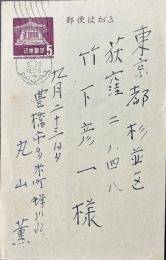 郵便はがき
日本郵便
5
東京都杉並区
荻窪二ノ四八
竹下彦一様
九月二十三日夕
豊橋市多米町蝉川
丸山薫